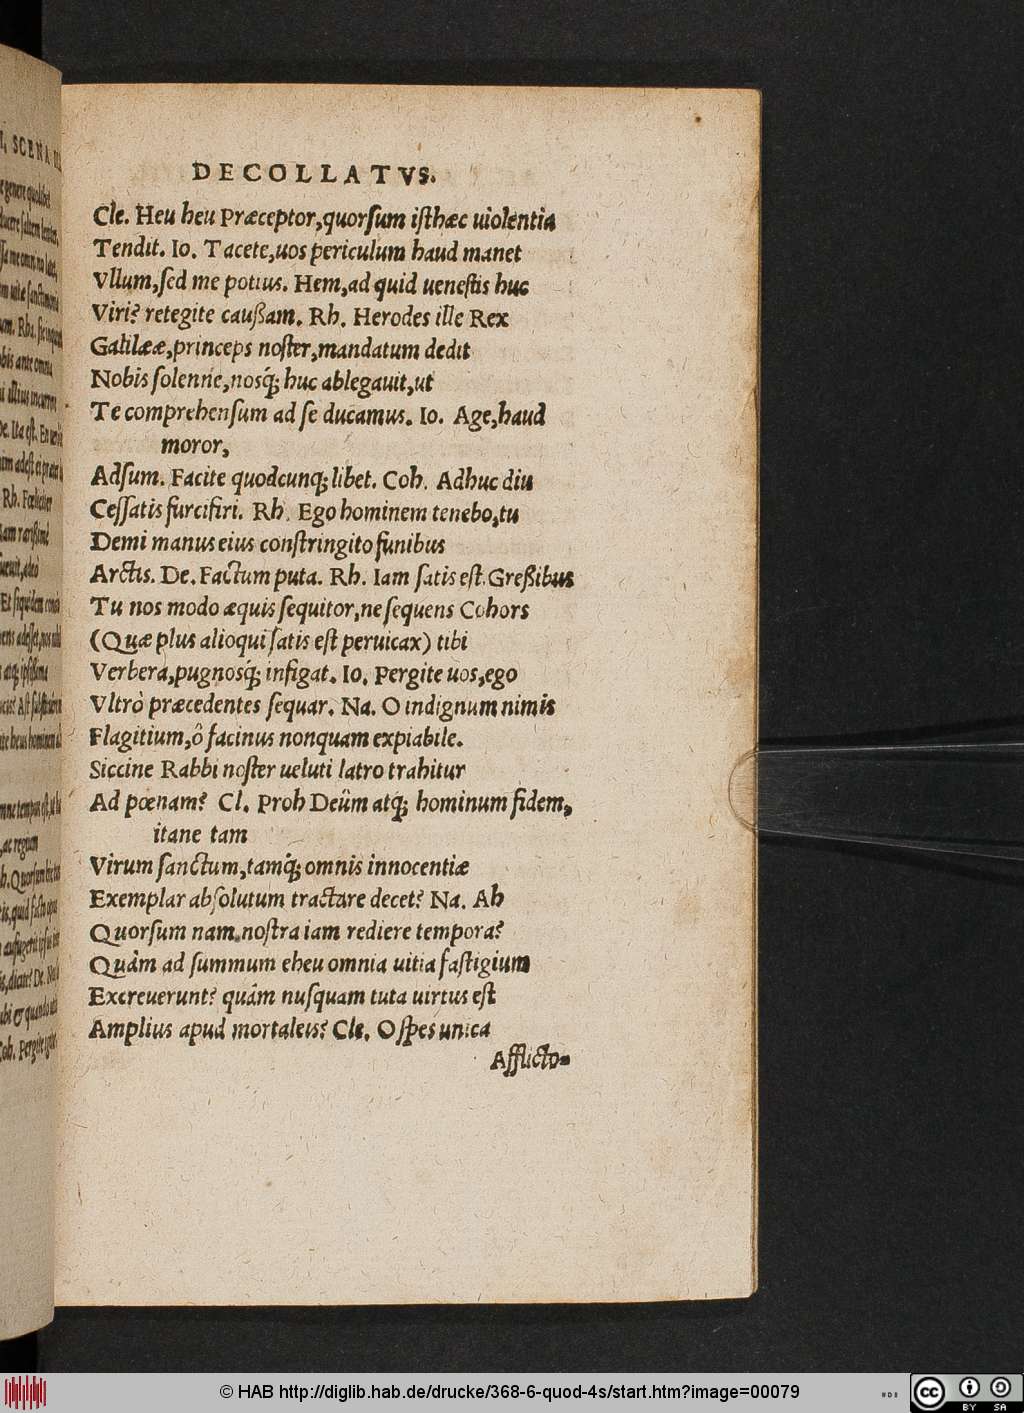 DECOLLATVS.
Cle. Heu heu Præceptor, quorſum iſthæc uiolentia
Tendit. Io. Tacete, uos periculum haud manet
Vllum, ſed me potius. Hem, ad quid ueneſtis huc
Viri? retegite caußam. Rh. Herodes ille Rex
Galilææ, princeps noſter, mandatum dedit
Nobis ſolenne, nosq́; huc ablegauit, ut
Te comprehenſum ad ſe ducamus. Io. Age, haud
moror,
Adſum. Facite quodcunq; libet. Coh. Adhuc diu
Ceſſatis furciferi. Rh. Ego hominem tenebo, tu
Demi manus eius conſtringito funibus
Arctis. De. Factum puta. Rh. Iam ſatis eſt. Greßibus
Tu nos modo æquis ſequitor, ne ſequens Cohors
(Quæ plus alioqui ſatis eſt peruicax) tibi
Verbera, pugnosq́; infigat. Io. Pergite uos, ego
Vltrò præcedentes ſequar. Na. O indignum nimis
Flagitium, ô facinus nonquam expiabile.
Siccine Rabbi noſter ueluti latro trahitur
Ad pœnam? Cl. Proh Deûm atq; hominum fidem,
itane tam
Virum ſanctum, tamq́; omnis innocentiæ
Exemplar abſolutum tractare decet? Na. Ah
Quorſum nam noſtra iam rediere tempora?
Quàm ad ſummum eheu omnia uitia faſtigium
Excreuerunt? quâm nuſquam tuta uirtus eſt
Amplius apud mortaleis? Cle. O ſpes unica
Afflicto-
© HAB http://diglib.hab.de/drucke/368-6-quod-4s/start.htm?image=00079
cc BY SA